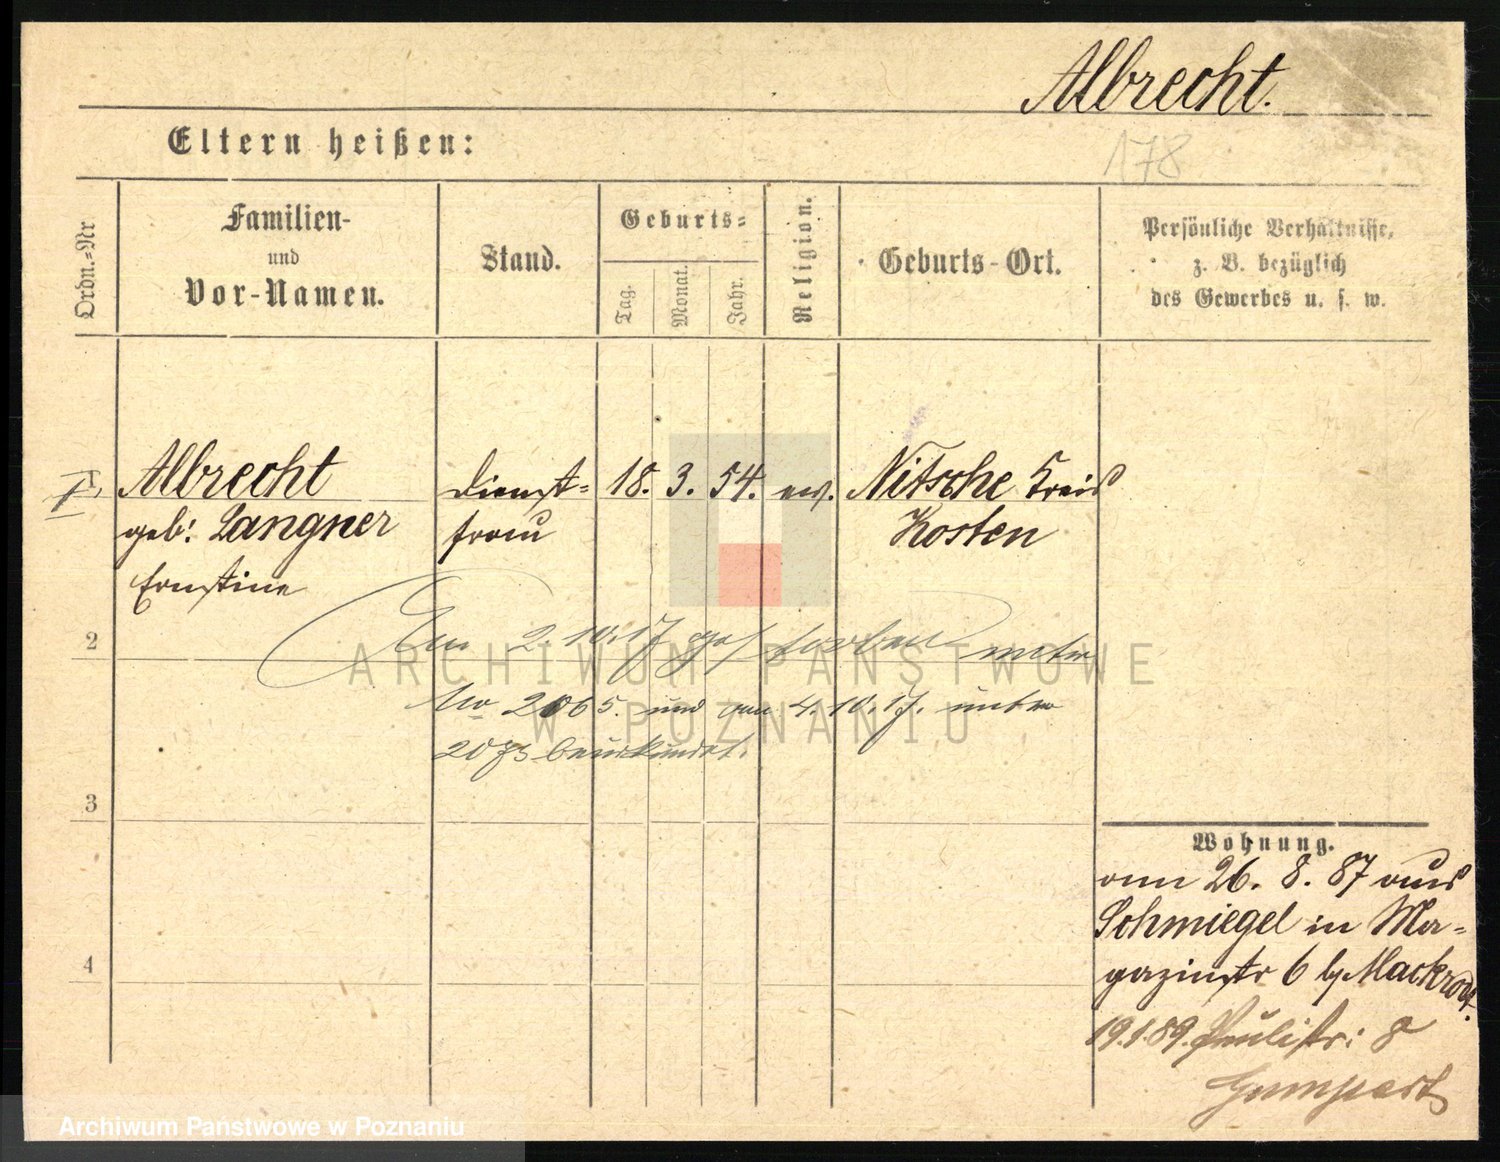 Albrecht.
178
Eltern heißen:
Ordn.=Nr
Familien-
und
Vor-Namen.
Stand.
Geburts=
Tag.
Monat.
Jahr.
Religion.
Geburts-Ort.
Persönliche Verhältnisse,
z. B. bezüglich
des Gewerbes u. s. w.
1
Albrecht
geb: Langner
Ernstine
Dienst=
frau
18. 3. 54. ev.
Nitsche Kreis
Kosten
2
Am 2.10.17 gestorben unter
No 2065. und am 4.10.17. unter
2073 beurkundet.
3
4
Wohnung.
am 26. 8. 87 aus
Schmiegel in Ma=
gazinstr 6 by Mackrodt.
19.1.89. Paulistr: 8
Gumpert
ARCHIWUM PAŃSTWOWE
W POZNANIU
Archiwum Państwowe w Poznaniu